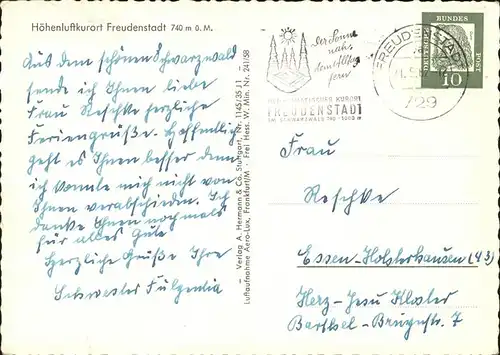 Höhenluftkurort Freudenstadt 740 m ü. M.
Aus dem schönen Schwarzwald
sende ich Ihnen liebe
Frau Reschke herzliche
Feriengrüße. Hoffentlich
geht es Ihnen besser denn
ich konnte mich nicht von
Ihnen verabschieden. Ich
danke Ihnen nochmals
für alles Gute
Herzliche Grüße Ihre
Schwester Fulgentia
— Verlag A. Hermann & Co. Stuttgart, Nr. 1145/35 J 1 —
Luftaufnahme Aero-Lux, Frankfurt/M — Frei Hess. W. Min. Nr. 241/58
Der Sonne
nah,
dem Alltag
fern
KURORT
FREUDENSTADT
IM SCHWARZWALD 740-1000 m
FREUDENSTADT
729
DEUTSCHE
BUNDES
POST
10
Frau
Reschke
Essen-Holsterhausen (43)
Herz-Jesu Kloster
Barthel-Bruyn str. 7